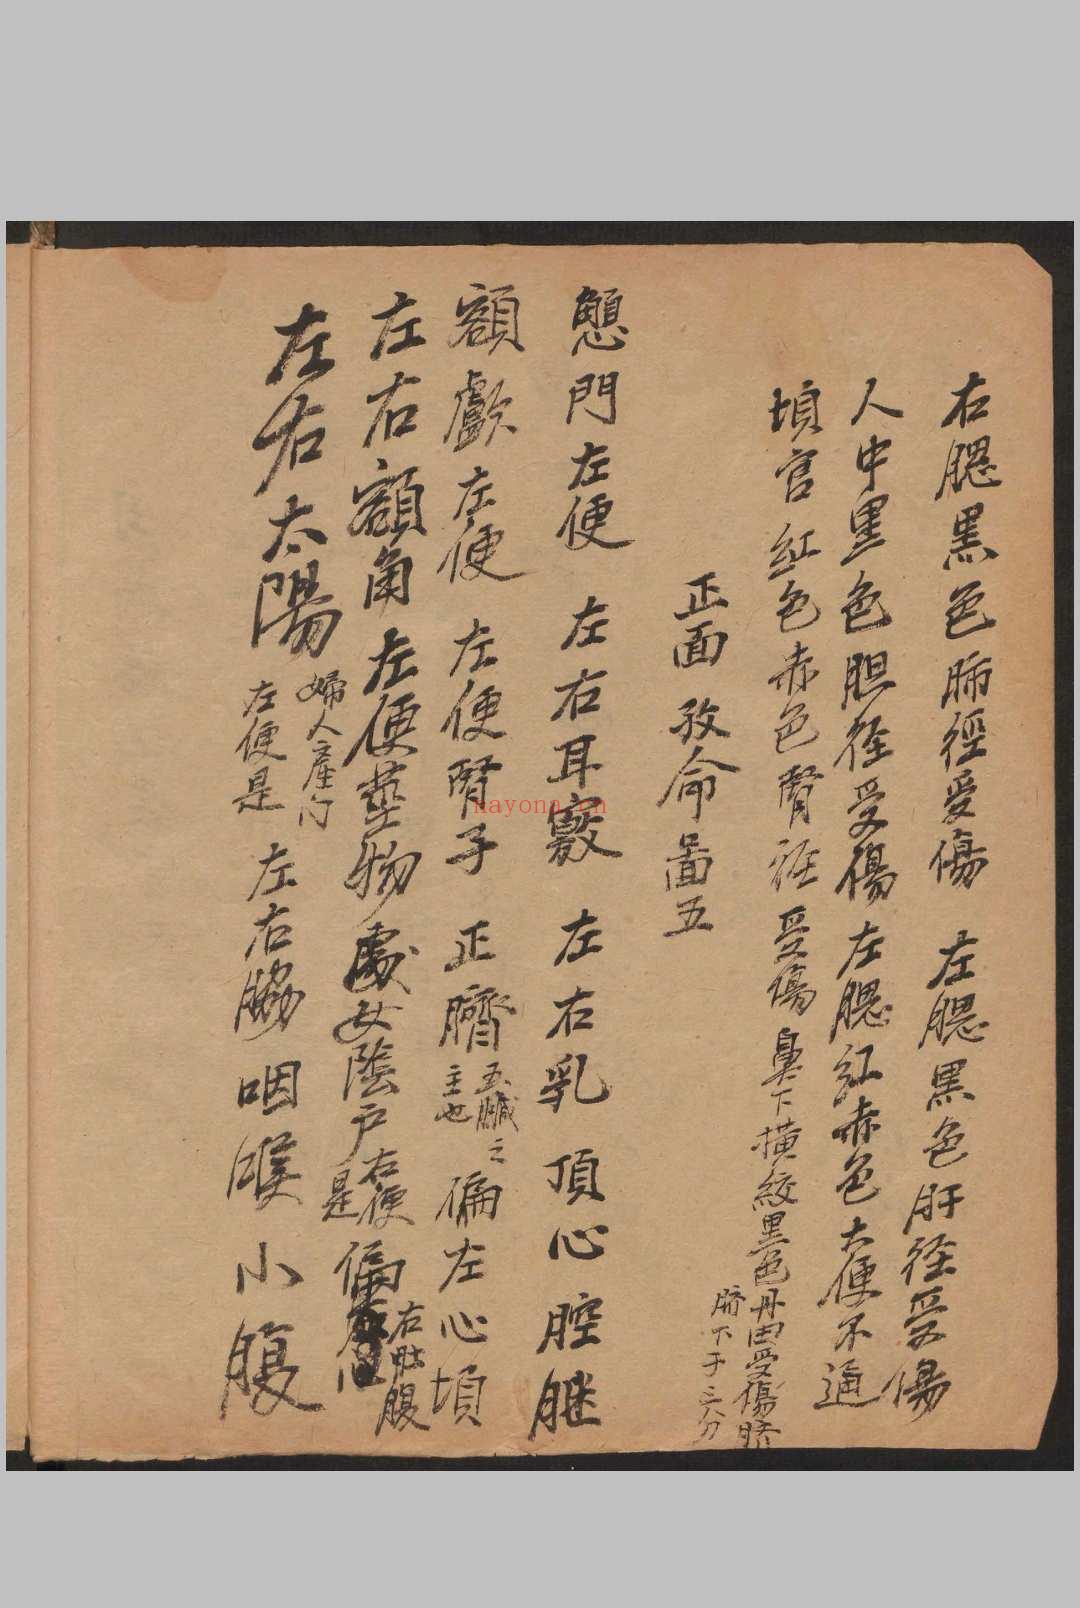 右腮黑色肺徑受傷 左腮黑色肝徑受傷
人中黑色胆徑受傷左腮紅赤色大便不通
官紅色赤色腎徑受傷鼻下橫絞黑色丹田受傷臍
臍下于三分
正面致命啚五
門左便 左右耳竅 左右乳 頂心 腔
額顱左便 左便腎子 正臍五臟之主也偏左心
左右額角左便莖物處女陰户右便是偏右肚腹
左右太陽婦人產門左便是 左右脇 咽喉 小腹
nayona.cn